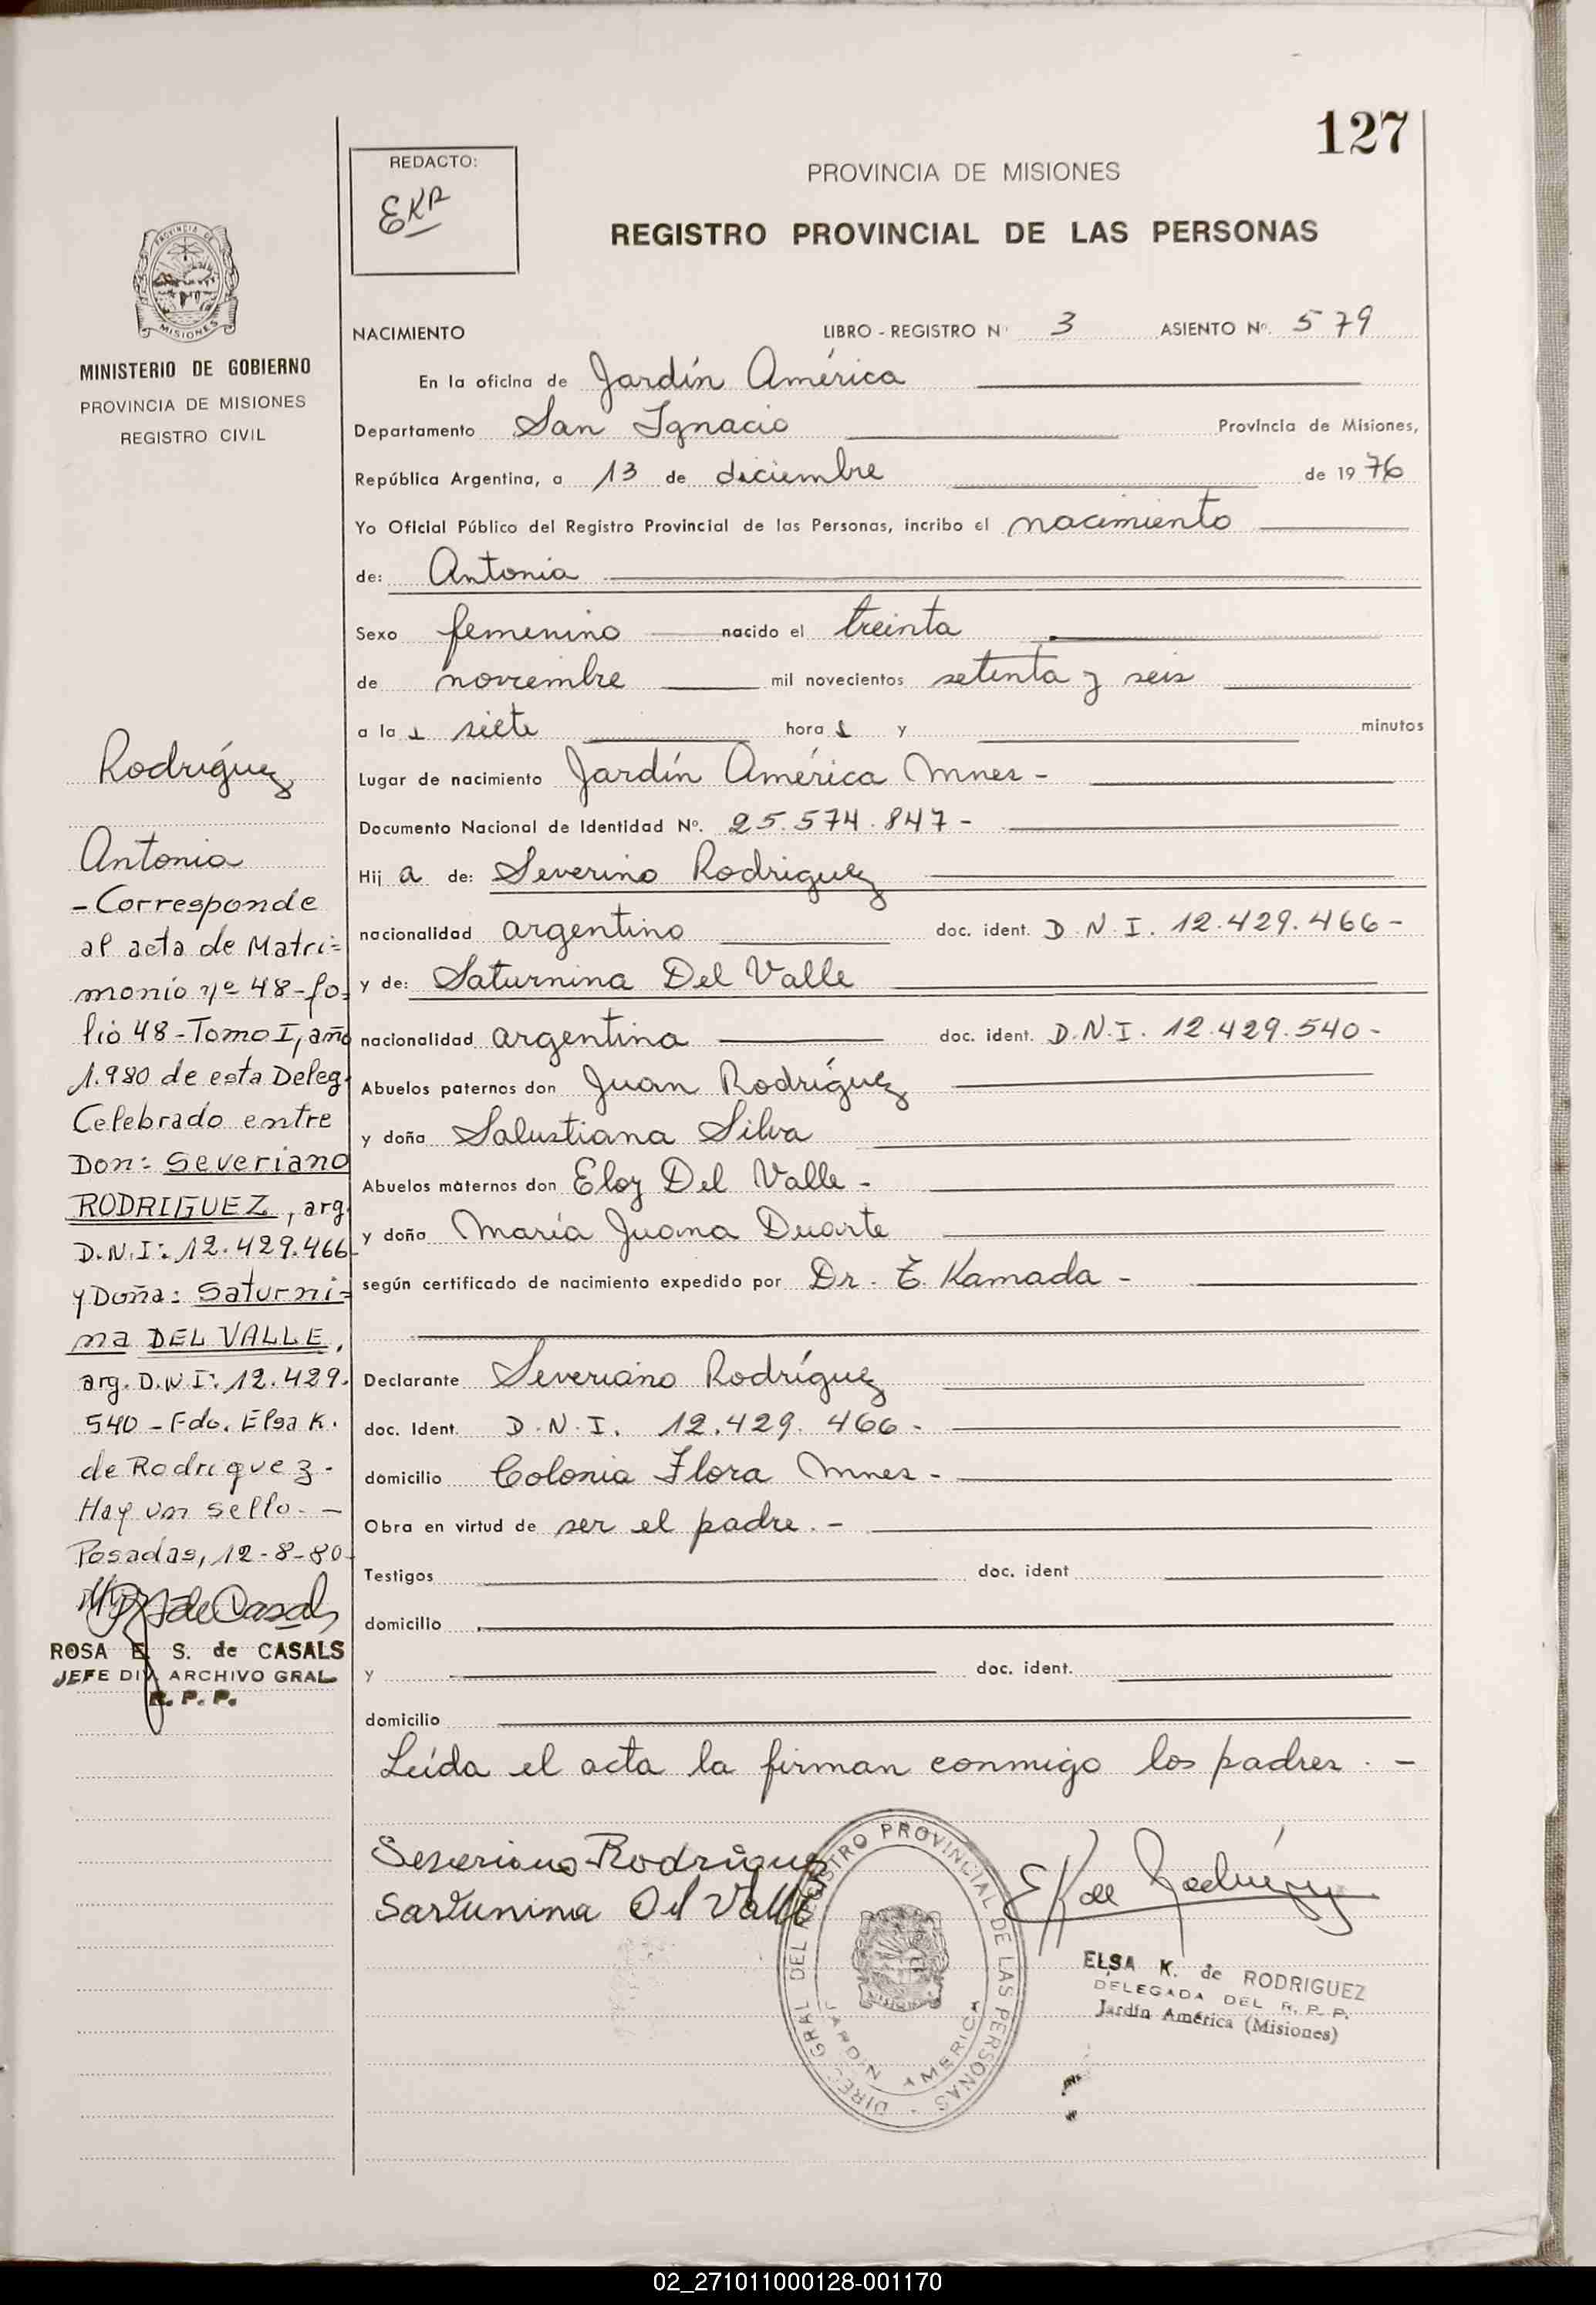 127
REDACTO:
EKR
PROVINCIA DE MISIONES
REGISTRO PROVINCIAL DE LAS PERSONAS
PROVINCIA DE
MISIONES
MINISTERIO DE GOBIERNO
PROVINCIA DE MISIONES
REGISTRO CIVIL
Rodríguez
Antonia
- Corresponde
al acta de Matri=
monio nº 48-fo=
lio 48-Tomo I, año
1.980 de esta Deleg.
Celebrado entre
Don: Severiano
RODRIGUEZ, arg.
D.N.I: 12.429.466
y Doña: Saturni=
na DEL VALLE,
arg. D.N I: 12.429.
540 - Fdo. Elsa K.
de Rodriguez-
Hay un sello. —
Posadas, 12-8-80
ROSA E. S. de CASALS
JEFE DIV. ARCHIVO GRAL
R. P. P.
NACIMIENTO LIBRO - REGISTRO Nº 3 ASIENTO Nº. 579
En la oficina de Jardín América
Departamento San Ignacio Provincia de Misiones,
República Argentina, a 13 de diciembre de 1976
Yo Oficial Público del Registro Provincial de las Personas, incribo el nacimiento
de: Antonia
Sexo femenino nacido el treinta
de noviembre mil novecientos setenta y seis
a la s siete hora s y minutos
Lugar de nacimiento Jardín América Mnes -
Documento Nacional de Identidad Nº. 25.574.847 -
Hij a de: Severino Rodriguez
nacionalidad argentino doc. ident. D.N.I. 12.429.466 -
y de: Saturnina Del Valle
nacionalidad argentina doc. ident. D.N.I. 12.429.540 -
Abuelos paternos don Juan Rodríguez
y doña Salustiana Silva
Abuelos maternos don Eloy Del Valle -
y doña María Juana Duarte
según certificado de nacimiento expedido por Dr. E. Kamada -
Declarante Severiano Rodríguez
doc. Ident. D.N.I. 12.429.466 -
domicilio Colonia Flora Mnes -
Obra en virtud de ser el padre. -
Testigos doc. ident
domicilio
y doc. ident.
domicilio
Leída el acta la firman conmigo los padres. -
Severiano Rodriguez
Sarunina Del Valle
DIREC. GRAL. DEL REGISTRO PROVINCIAL DE LAS PERSONAS
JARDIN AMERICA
EK de Rodríguez
ELSA K. de RODRIGUEZ
DELEGADA DEL R. P. P.
Jardín América (Misiones)
02_271011000128-001170